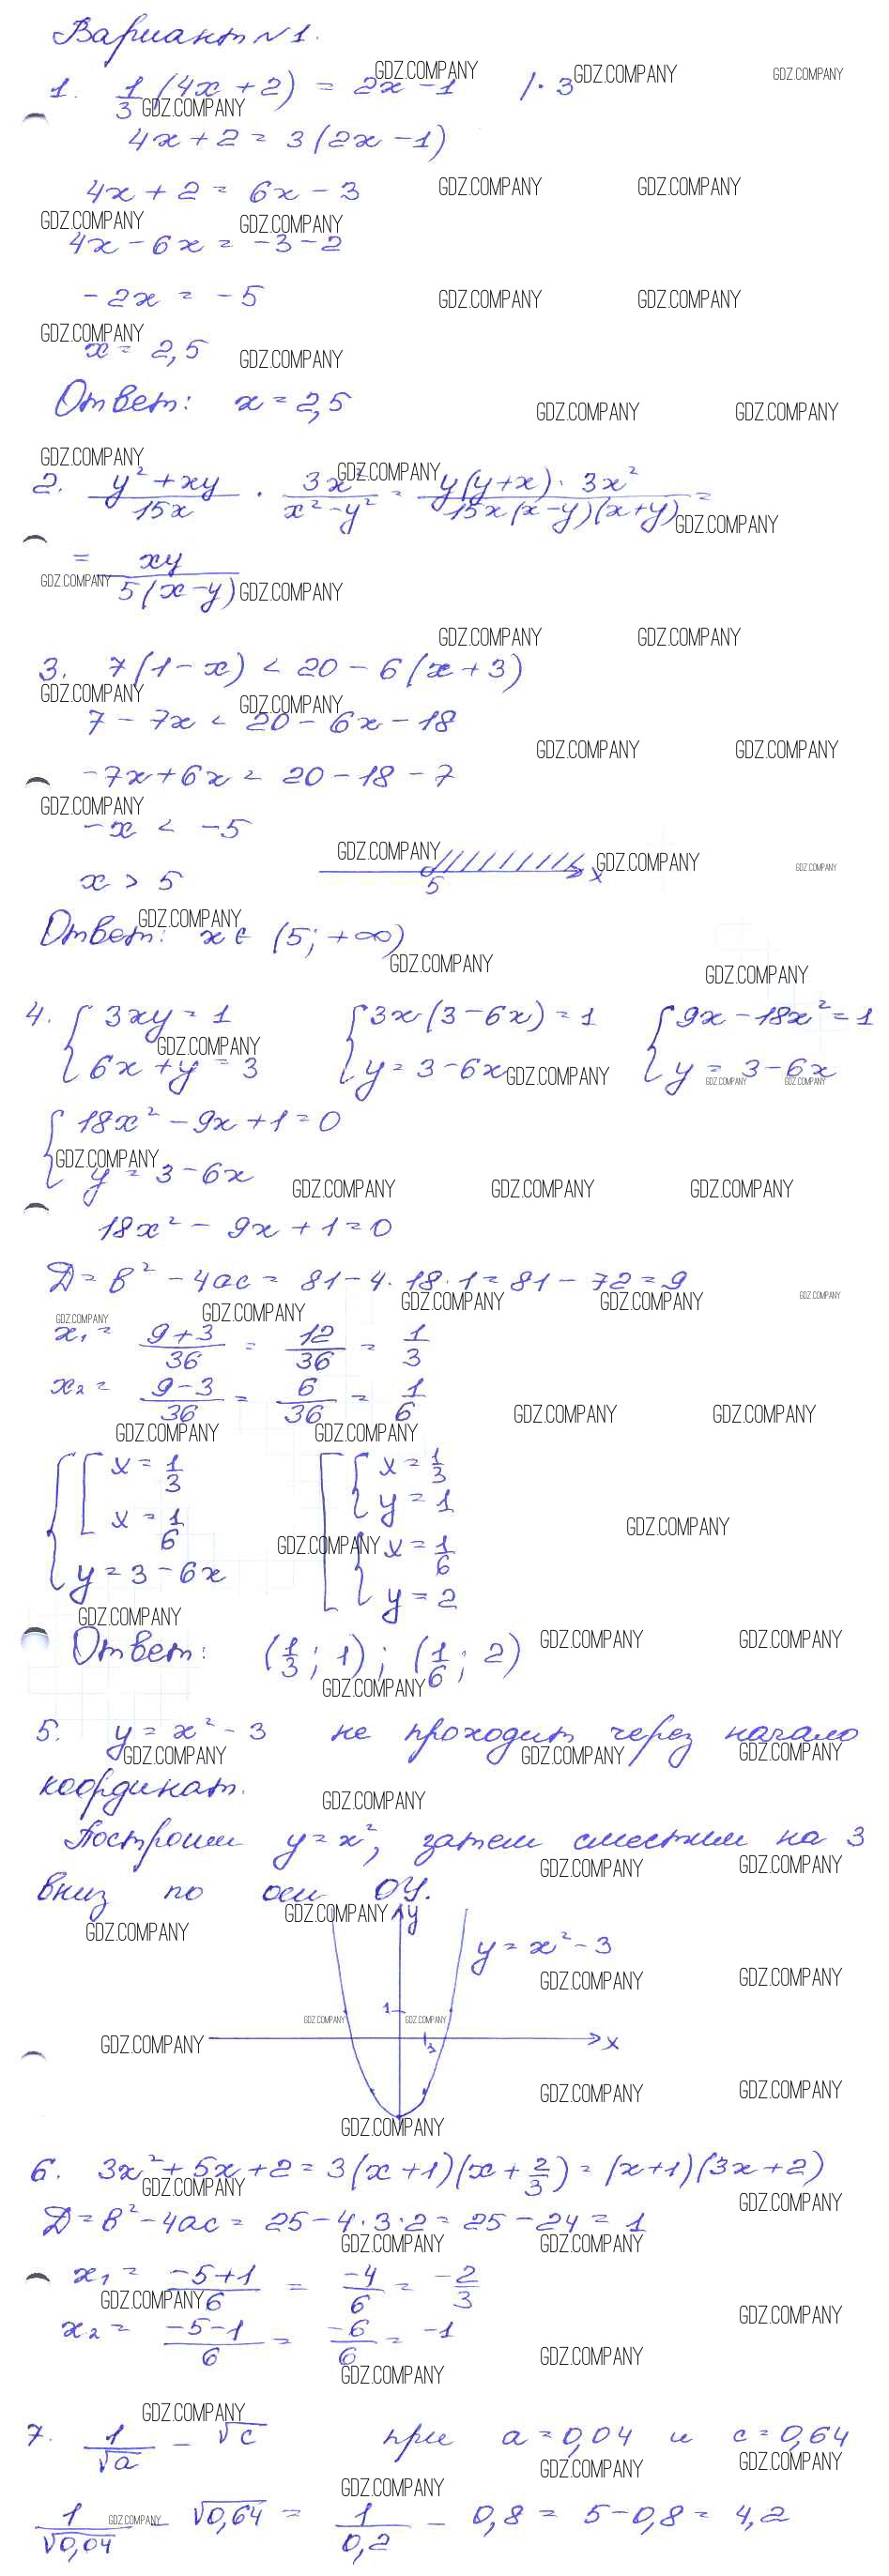 Вариант №1.
1. 1/3 (4x + 2) = 2x - 1 | · 3
4x + 2 = 3(2x - 1)
4x + 2 = 6x - 3
4x - 6x = -3 - 2
-2x = -5
x = 2,5
Ответ: x = 2,5
2. (y² + xy)/(15x) · (3x²)/(x² - y²) = (y(y+x) · 3x²)/(15x(x-y)(x+y)) =
= xy/(5(x-y))
3. 7(1 - x) < 20 - 6(x + 3)
7 - 7x < 20 - 6x - 18
-7x + 6x < 20 - 18 - 7
-x < -5
x > 5 5 x
Ответ: x ∈ (5; +∞)
4. { 3xy = 1 { 3x(3 - 6x) = 1 { 9x - 18x² = 1
{ 6x + y = 3 { y = 3 - 6x { y = 3 - 6x
{ 18x² - 9x + 1 = 0
{ y = 3 - 6x
18x² - 9x + 1 = 0
Д = в² - 4ас = 81 - 4 · 18 · 1 = 81 - 72 = 9
x₁ = (9 + 3)/36 = 12/36 = 1/3
x₂ = (9 - 3)/36 = 6/36 = 1/6
{ [ x = 1/3 [ { x = 1/3
y = 1
x = 1/6 { x = 1/6
y = 3 - 6x y = 2
Ответ: (1/3; 1); (1/6; 2)
5. y = x² - 3 не проходит через начало
координат.
Построим y = x², затем сместим на 3
вниз по оси ОУ.
y
y = x² - 3
1
x
6. 3x² + 5x + 2 = 3(x + 1)(x + 2/3) = (x+1)(3x+2)
Д = в² - 4ас = 25 - 4 · 3 · 2 = 25 - 24 = 1
x₁ = (-5+1)/6 = -4/6 = -2/3
x₂ = (-5-1)/6 = -6/6 = -1
7. 1/√a - √c при a = 0,04 и c = 0,64
1/√0,04 - √0,64 = 1/0,2 - 0,8 = 5 - 0,8 = 4,2
GDZ.COMPANY